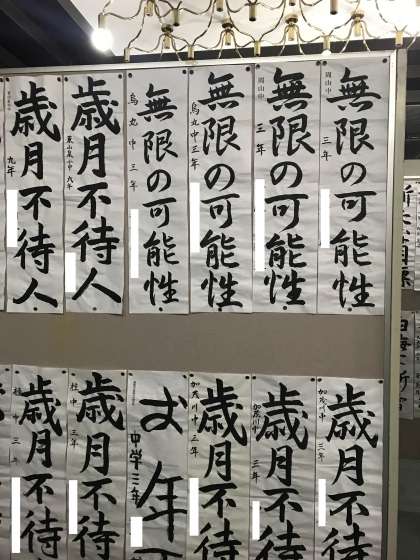 無限の可能性
周山中 三年
無限の可能性
周山中 三年
無限の可能性
烏丸中三年
無限の可能性
烏丸中 三年
歳月不待人
東山泉小中 九年
歳月不待人
九年
歳月不待
加茂川中 三年
歳月不待
加茂川中 三年
歳月不待
加茂川中 三年
お年
中学三年
歳月不待
桂中 三年
歳月不待
桂 三年